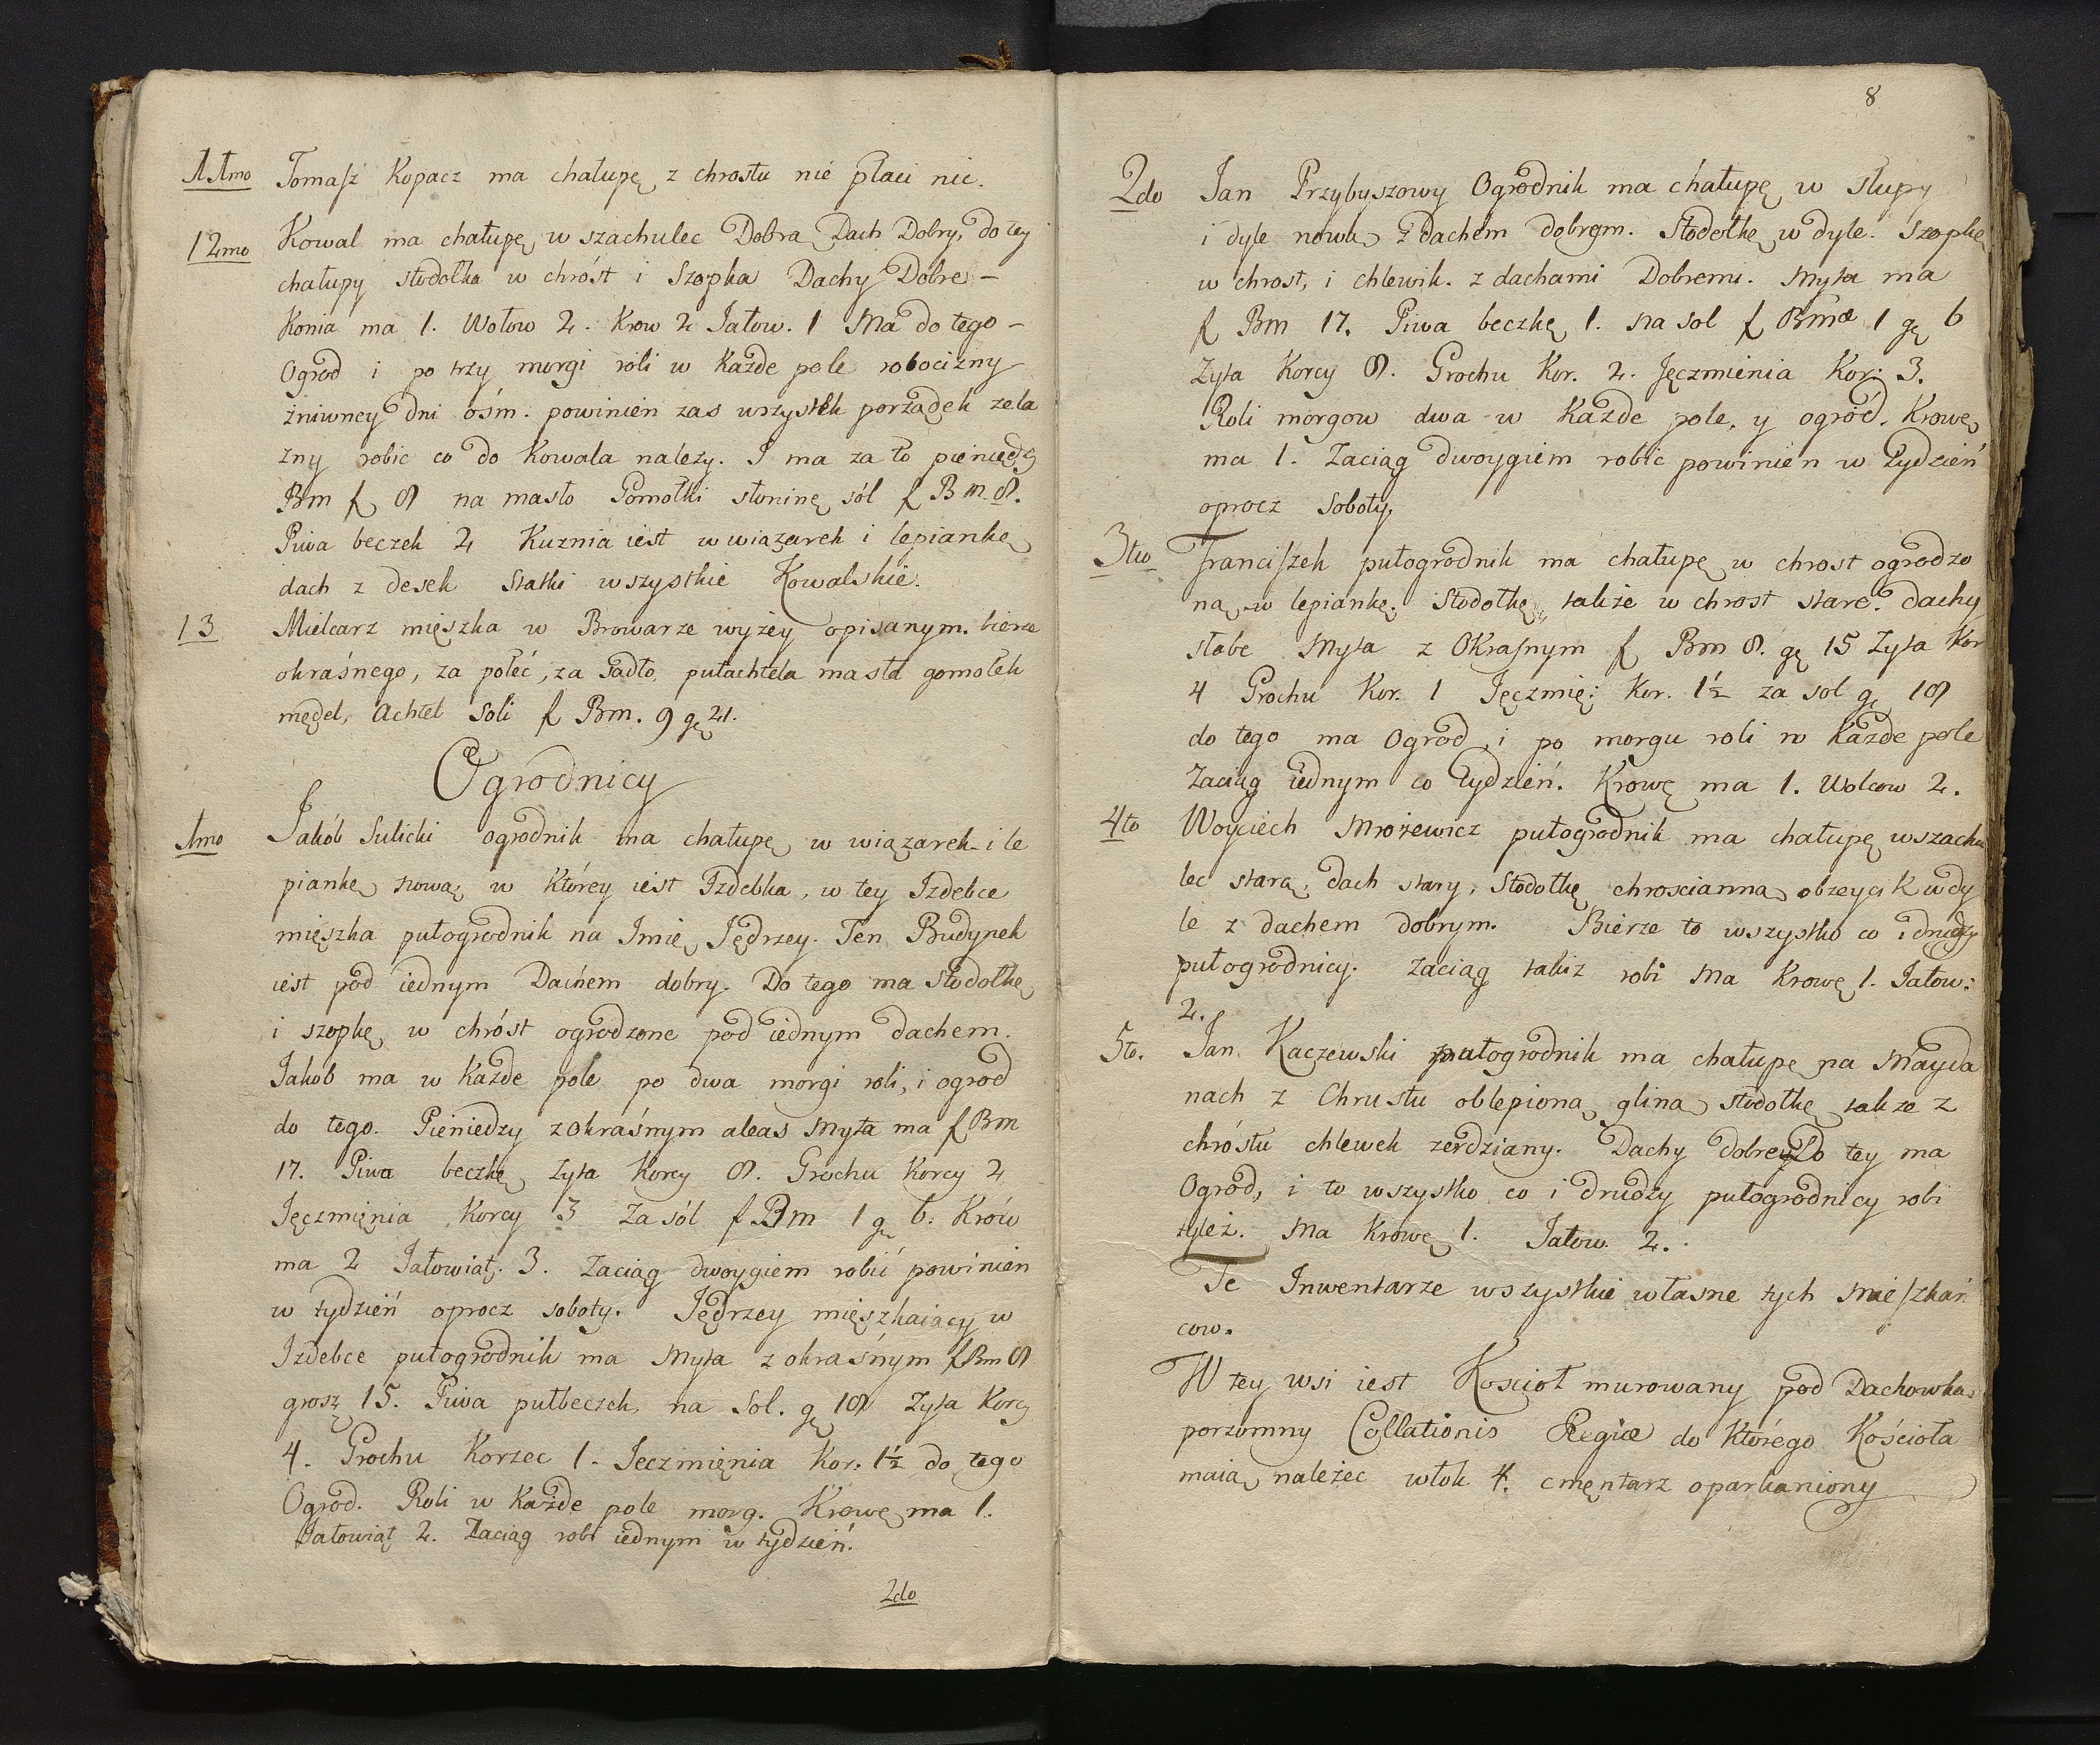 11tmo Tomasz Kopacz ma chałupę z chrostu nie płaci nic.
12mo Kowal ma chałupę w szachulec Dobra Dach Dobry, do tey
chałupy stodołka w chróst i Szopka Dachy Dobre –
Konia ma 1. Wołow 2. Krow 2 Jałow. 1 Ma do tego –
Ogrod i po trzy morgi roli w Każde pole robocizny
żniwney dni ośm. powinien zas wszystek porządek zela
zny robic co do Kowala nalezy. I ma za to pieniędzy
Bm f 8 na masło Gomołki słoninę sól f Bm 8.
Piwa beczek 2 Kuznia iest w wiązarek i lepiankę
dach z desek Statki wszystkie Kowalskie.
13 Mielcarz mięszka w Browarze wyżey opisanym. bierze
okraśnego, za połeć, za Sadło, pułachtela masła gomołek
mędel, Achtel Soli f Bm. 9 gę 21.
Ogrodnicy
1mo Jakób Sulicki ogrodnik ma chałupę w wiązarek i le
piankę nową w Którey iest Izdebka, w tey Izdebce
mięszka pułogrodnik na Imię Jędrzey. Ten Budynek
iest pod iednym Dachem dobry. Do tego ma stodołkę
i szopkę w chróst ogrodzone pod iednym dachem.
Jakob ma w Każde pole po dwa morgi roli, i ogrod
do tego. Pieniedzy z okraśnym aleas Myta ma f Bm
17. Piwa beczkę żyta Korcy 8. Grochu Korcy 2
Jęczmięnia Korcy 3 Za sól f Bm 1 gę 6. Krów
ma 2 Jałowiąt. 3. Zaciąg dwoygiem robić powinien
w tydzień oprocz soboty. Jędrzey mięszkaiacy w
Izdebce pułogrodnik ma Myta z okraśnym f Bm 8
groszę 15. Piwa pułbeczek na Sol. gę 18 Zyta Korcy
4. Grochu Korzec 1. Jeczmięnia Kor: 1½ do tego
Ogrod. Roli w Każde pole morg. Krowę ma 1.
Jałowiąt 2. Zaciąg robi iednym w tydzień.
2do
8
2do Jan Przybyszowy Ogrodnik ma chałupę w Słupy
i dyle nową z dachem dobrym. Stodołkę w dyle. Szopkę
w chrost, i chlewik. z dachami Dobremi. Myta ma
f Bm 17. Piwa beczkę 1. na sol f Bmæ 1 gę 6
Zyta Korcy 8. Grochu Kor. 2. Jęczmienia Kor: 3.
Roli morgow dwa w Każde pole, y ogród. Krowę
ma 1. Zaciąg dwoygiem robić powinien w Tydzień
oprocz Soboty,
3tio Franciszek pułogrodnik ma chałupę w chrost ogrodzo
ną w lepiankę. Stodołkę także w chrost stare. dachy
słabe Myta z Okrasnym f Bm 8. gę 15 Zyta Kor
4 Grochu Kor. 1 Jęczmię: Kor. 1½ za sol gę 18
do tego ma Ogrod, i po morgu roli w Każde pole
Zaciąg iednym co Tydzień. Krowę ma 1. Wolcow 2.
4to Woyciech Mrożewicz pułogrodnik ma chałupę w szachu
lec starą, dach stary, Stodołkę chroscianną obzeycik w dy
le z dachem dobrym. Bierze to wszystko co i drudzy
pułogrodnicy. Zaciąg takiz robi Ma Krowę 1. Jałow:
2.
5to. Jan Kaczewski pułogrodnik ma chałupę na Mayda
nach z Chrustu oblepioną gliną stodołkę takze z
chróstu chlewek zerdziany. Dachy dobre Do tey ma
Ogrod, i to wszystko co i drudzy pułogrodnicy robi
tyleż. Ma Krowę 1. Jałow. 2.
Te Inwentarze wszystkie własne tych Mieszkań
cow.
W tey wsi iest Kościoł murowany pod Dachowką
porzomny Collationis Regiæ do Którego Kościoła
maią należec włok 4. cmęntarz oparkaniony